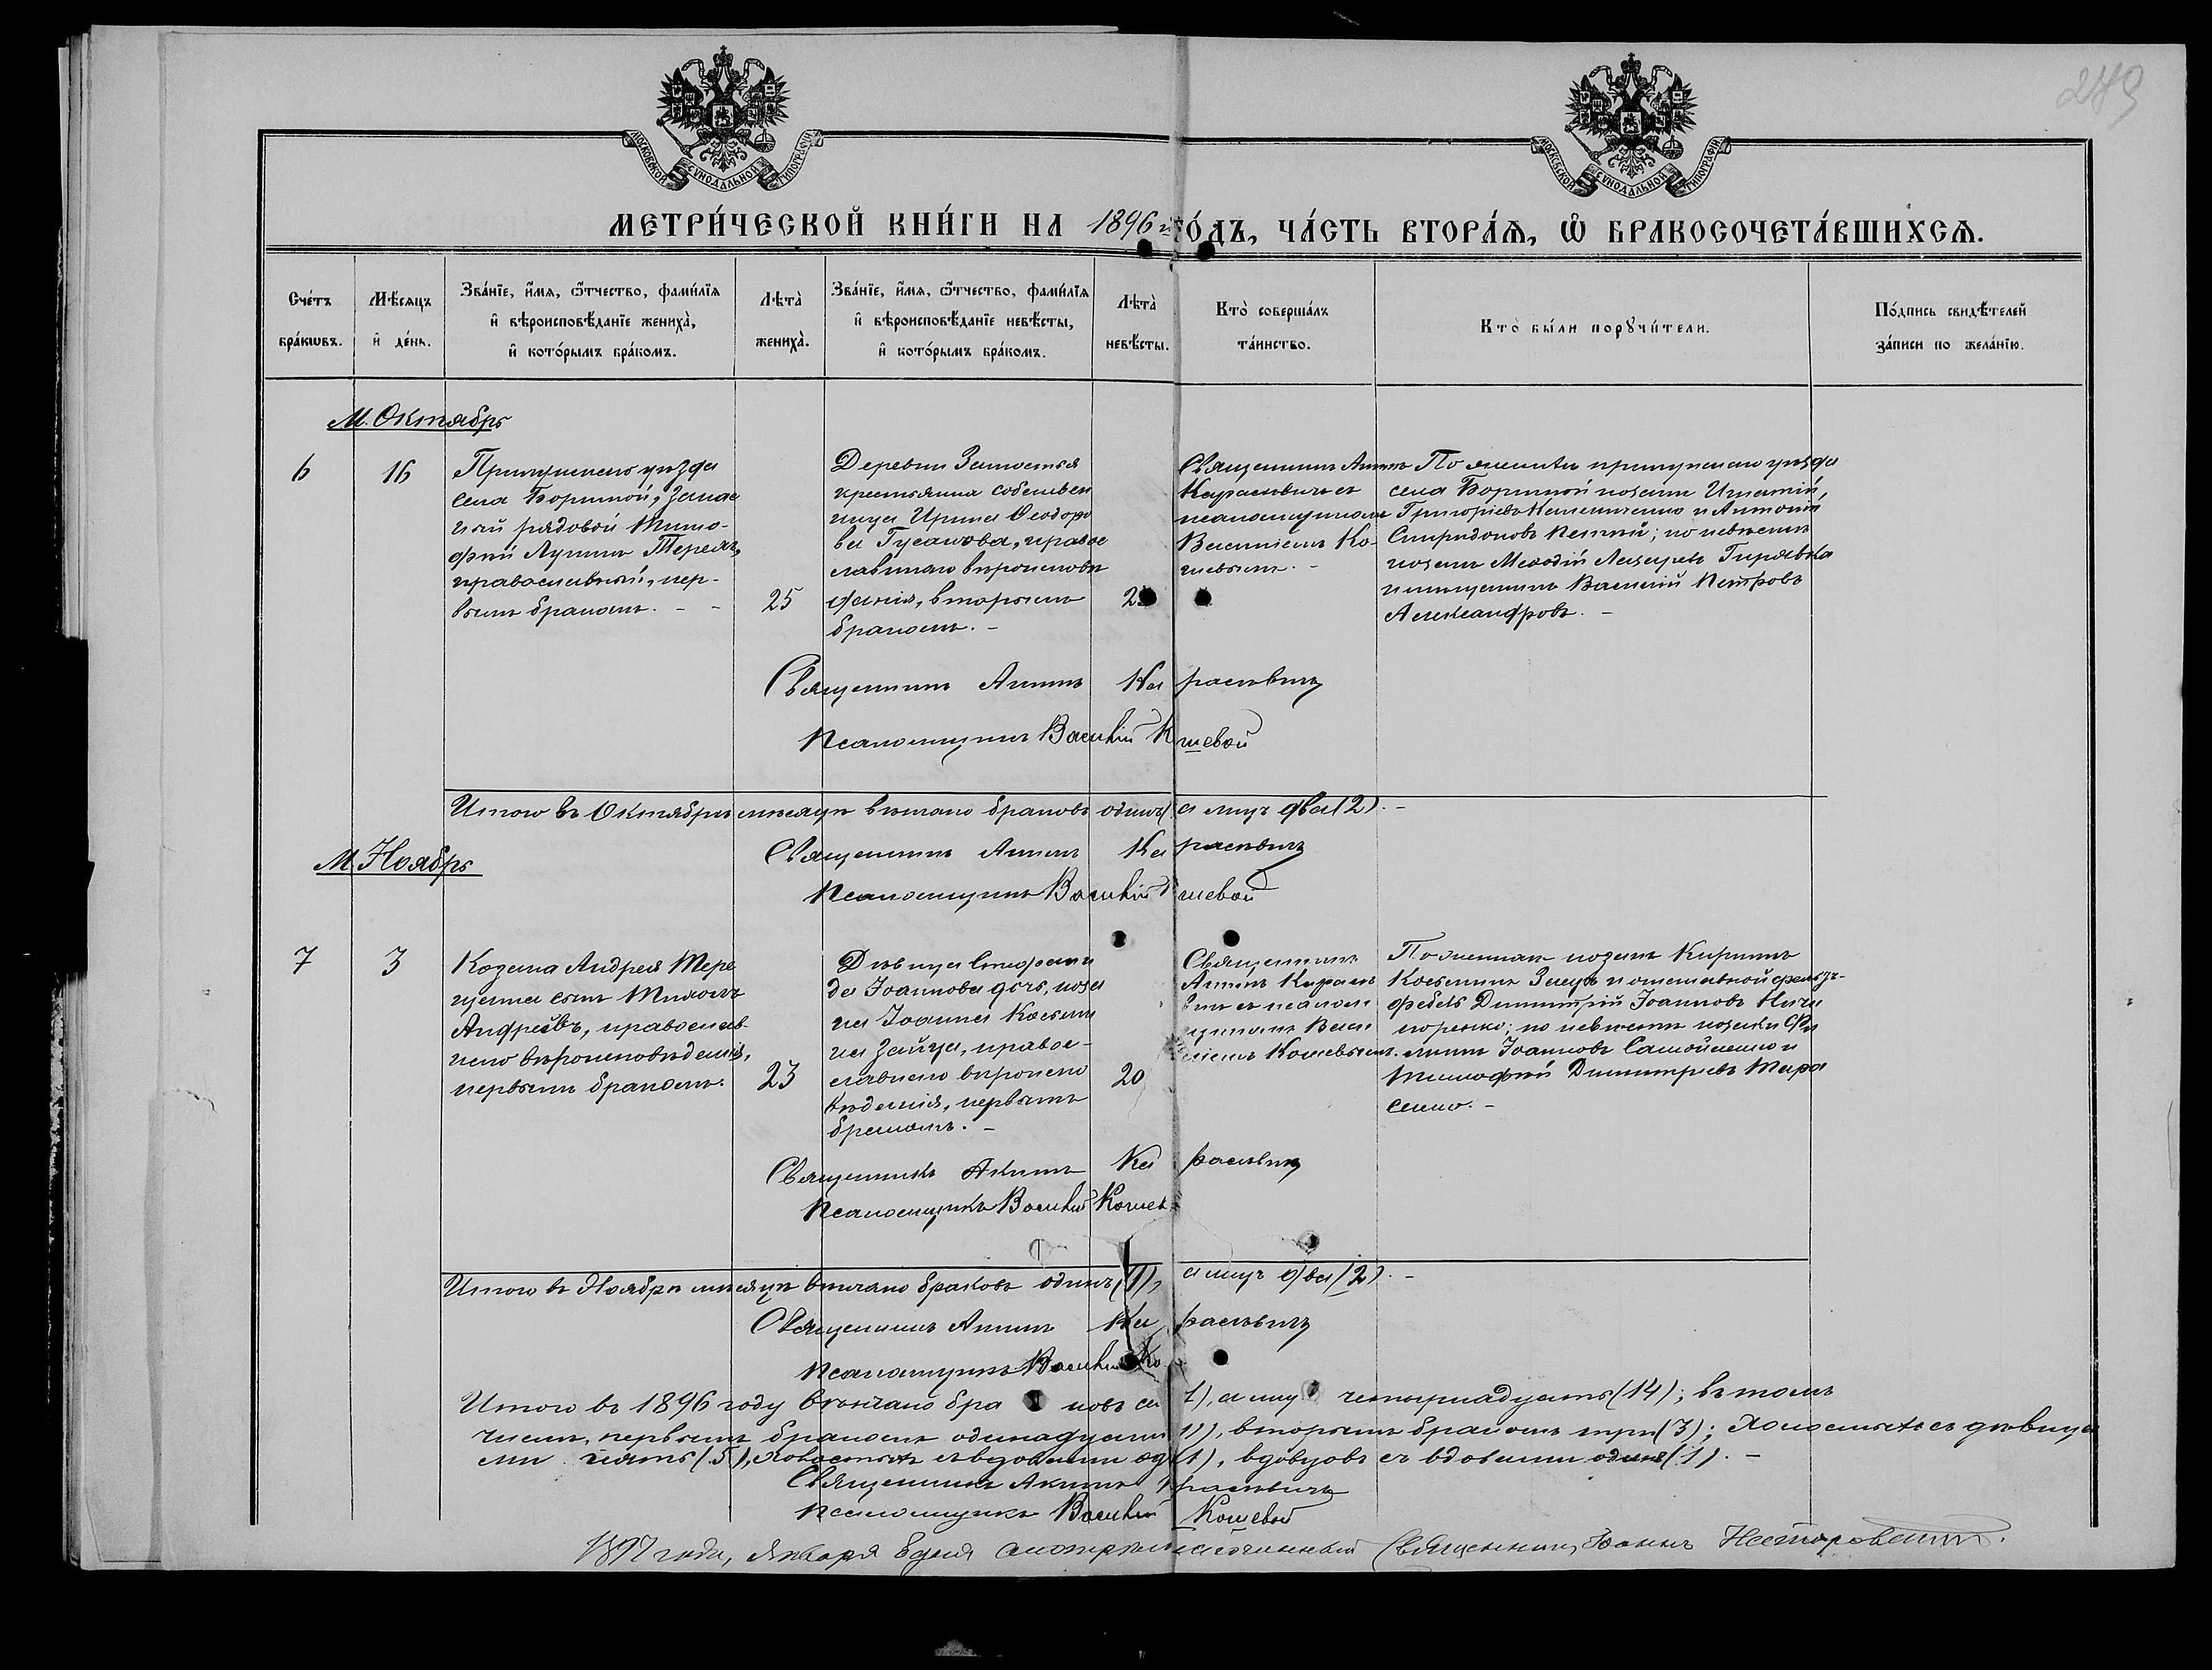 249
МОСКОВСКОЙ СУНОДАЛЬНОЙ ТИПОГРАФІИ
МОСКОВСКОЙ СУНОДАЛЬНОЙ ТИПОГРАФІИ
МЕТРИ́ЧЕСКОЙ КНИ́ГИ НА 1896 й ГО́ДЪ, ЧА́СТЬ ВТОРА́Ѧ, Ѡ҆ БРАКОСОЧЕТА́ВШИХСѦ.
Сче́тъ бра́кѡвъ.
Мѣ́сяцъ и҆ де́нь.
Зва́нїе, и҆́мѧ, ѻ҆́тчество, фами́лїѧ
и҆ вѣроисповѣ́данїе жениха̀,
и҆ кото́рымъ бра́комъ.
Лѣта̀ жениха̀.
Зва́нїе, и҆́мѧ, ѻ҆́тчество, фами́лїѧ
и҆ вѣроисповѣ́данїе невѣ́сты,
и҆ кото́рымъ бра́комъ.
Лѣта̀ невѣ́сты.
Кто̀ соверша́лъ
та́инство.
Кто̀ бы́ли порꙋчи́тели.
По́дпись свидѣ́телей
за́писи по жела́нїю.
М. Октябрь
6
16
Прилукскаго уѣзда
села Боршной, запас
ный рядовой Тимо-
фій Лукинъ
православный, пер-
вымъ бракомъ. - -
25
Деревни Замостья
крестьянка собствен
ница Ирина Ѳеодоро
ва Гусакова, правос
лавнаго вѣроисповѣ
данія, вторымъ
бракомъ. -
Священникъ Акимъ
Карасевичъ съ
псаломщикомъ
Василіемъ Ко-
шевымъ. -
По женихѣ прилукскаго уѣзда
села Боршной козаки Игнатій
Григорьевъ и Антоній
Спиридоновъ; по невѣстѣ
козакъ Меѳодій Лазаревъ Гирявка
и мѣщанинъ Василій Петровъ
Александровъ. -
Священникъ Акимъ Карасевичъ
Псаломщикъ Василій Кошевой
Итого въ Октябрѣ мѣсяцѣ вѣнчано браковъ одинъ( а лицъ два(2). -
Священникъ Акимъ Карасевичъ
Псаломщикъ Василій Кошевой
М. Ноябрь
7
3
Козака Андрея Тере
щенка сынъ
Андреевъ, православ-
наго вѣроисповѣданія,
первымъ бракомъ.
23
Дѣвица Стефани
да Іоаннова дочь, коза
ка Іоанна Косьми
на Зайца, правос-
лавнаго вѣроиспо
вѣданія, первымъ
бракомъ. -
20
Священникъ
Акимъ Карасе
вичъ съ псалом
щикомъ Васи
ліемъ Кошевымъ.
По женихѣ козакъ Кириллъ
Косьминъ Заецъ и отставной фельд-
фебель Димитрій Іоанновъ Ничи
поренко; по невѣстѣ козаки Фи
липпъ Іоанновъ Самойленко и
Тимофій Димитріевъ Тара
сенко. -
Священникъ Акимъ Карасевичъ
Псаломщикъ Василій Кошев
Итого въ Ноябрѣ мѣсяцѣ вѣнчано браковъ одинъ(1), а лицъ два(2). -
Священникъ Акимъ Карасевичъ
Псаломщикъ Василій Ко
Итого въ 1896 году вѣнчано браковъ се), а лицъ четырнадцать(14); въ томъ
числѣ, первымъ бракомъ одинадцать 11), вторымъ бракомъ три(3); холостыхъ съ дѣвица
ми пять(5), холостыхъ съ вдовами од(1), вдовцовъ съ вдовами одинъ(1). -
Священникъ Акимъ Карасевичъ
Псаломщикъ Василій Кошевой
1897 года, Января 8 дня смотрѣлъ Благочинный Священникъ Іоаннъ Несторовскій.